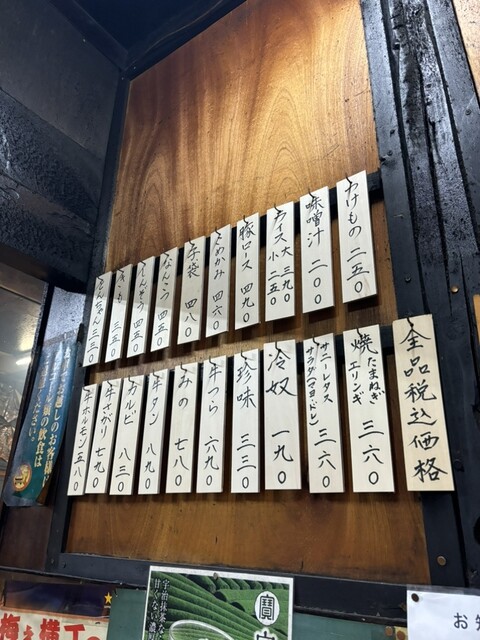 つけもの 二五〇
味噌汁 二〇〇
ライス 大 三九〇 小 二五〇
豚ロース 四九〇
こめかみ 四六〇
子袋 四八〇
なんこつ 四五〇
しんぞう 四五〇
三五〇
三三〇
全品税込価格
焼 たまねぎ エリンギ 三六〇
サニーレタス サラダ(マヨ・ドレ) 三六〇
冷奴 一九〇
珍味 三三〇
牛つら 六九〇
みの 七八〇
牛タン 八九〇
カルビ 八三〇
牛さがり 七九〇
牛ホルモン 五八〇
お越しのお客様
の飲食は
ください。
宇治抹茶
寳
横丁の
お知